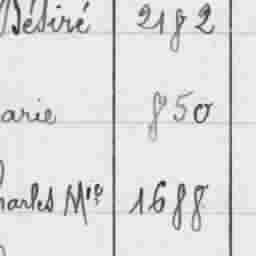 Désiré 2182
arie 850
harles Mie 1688